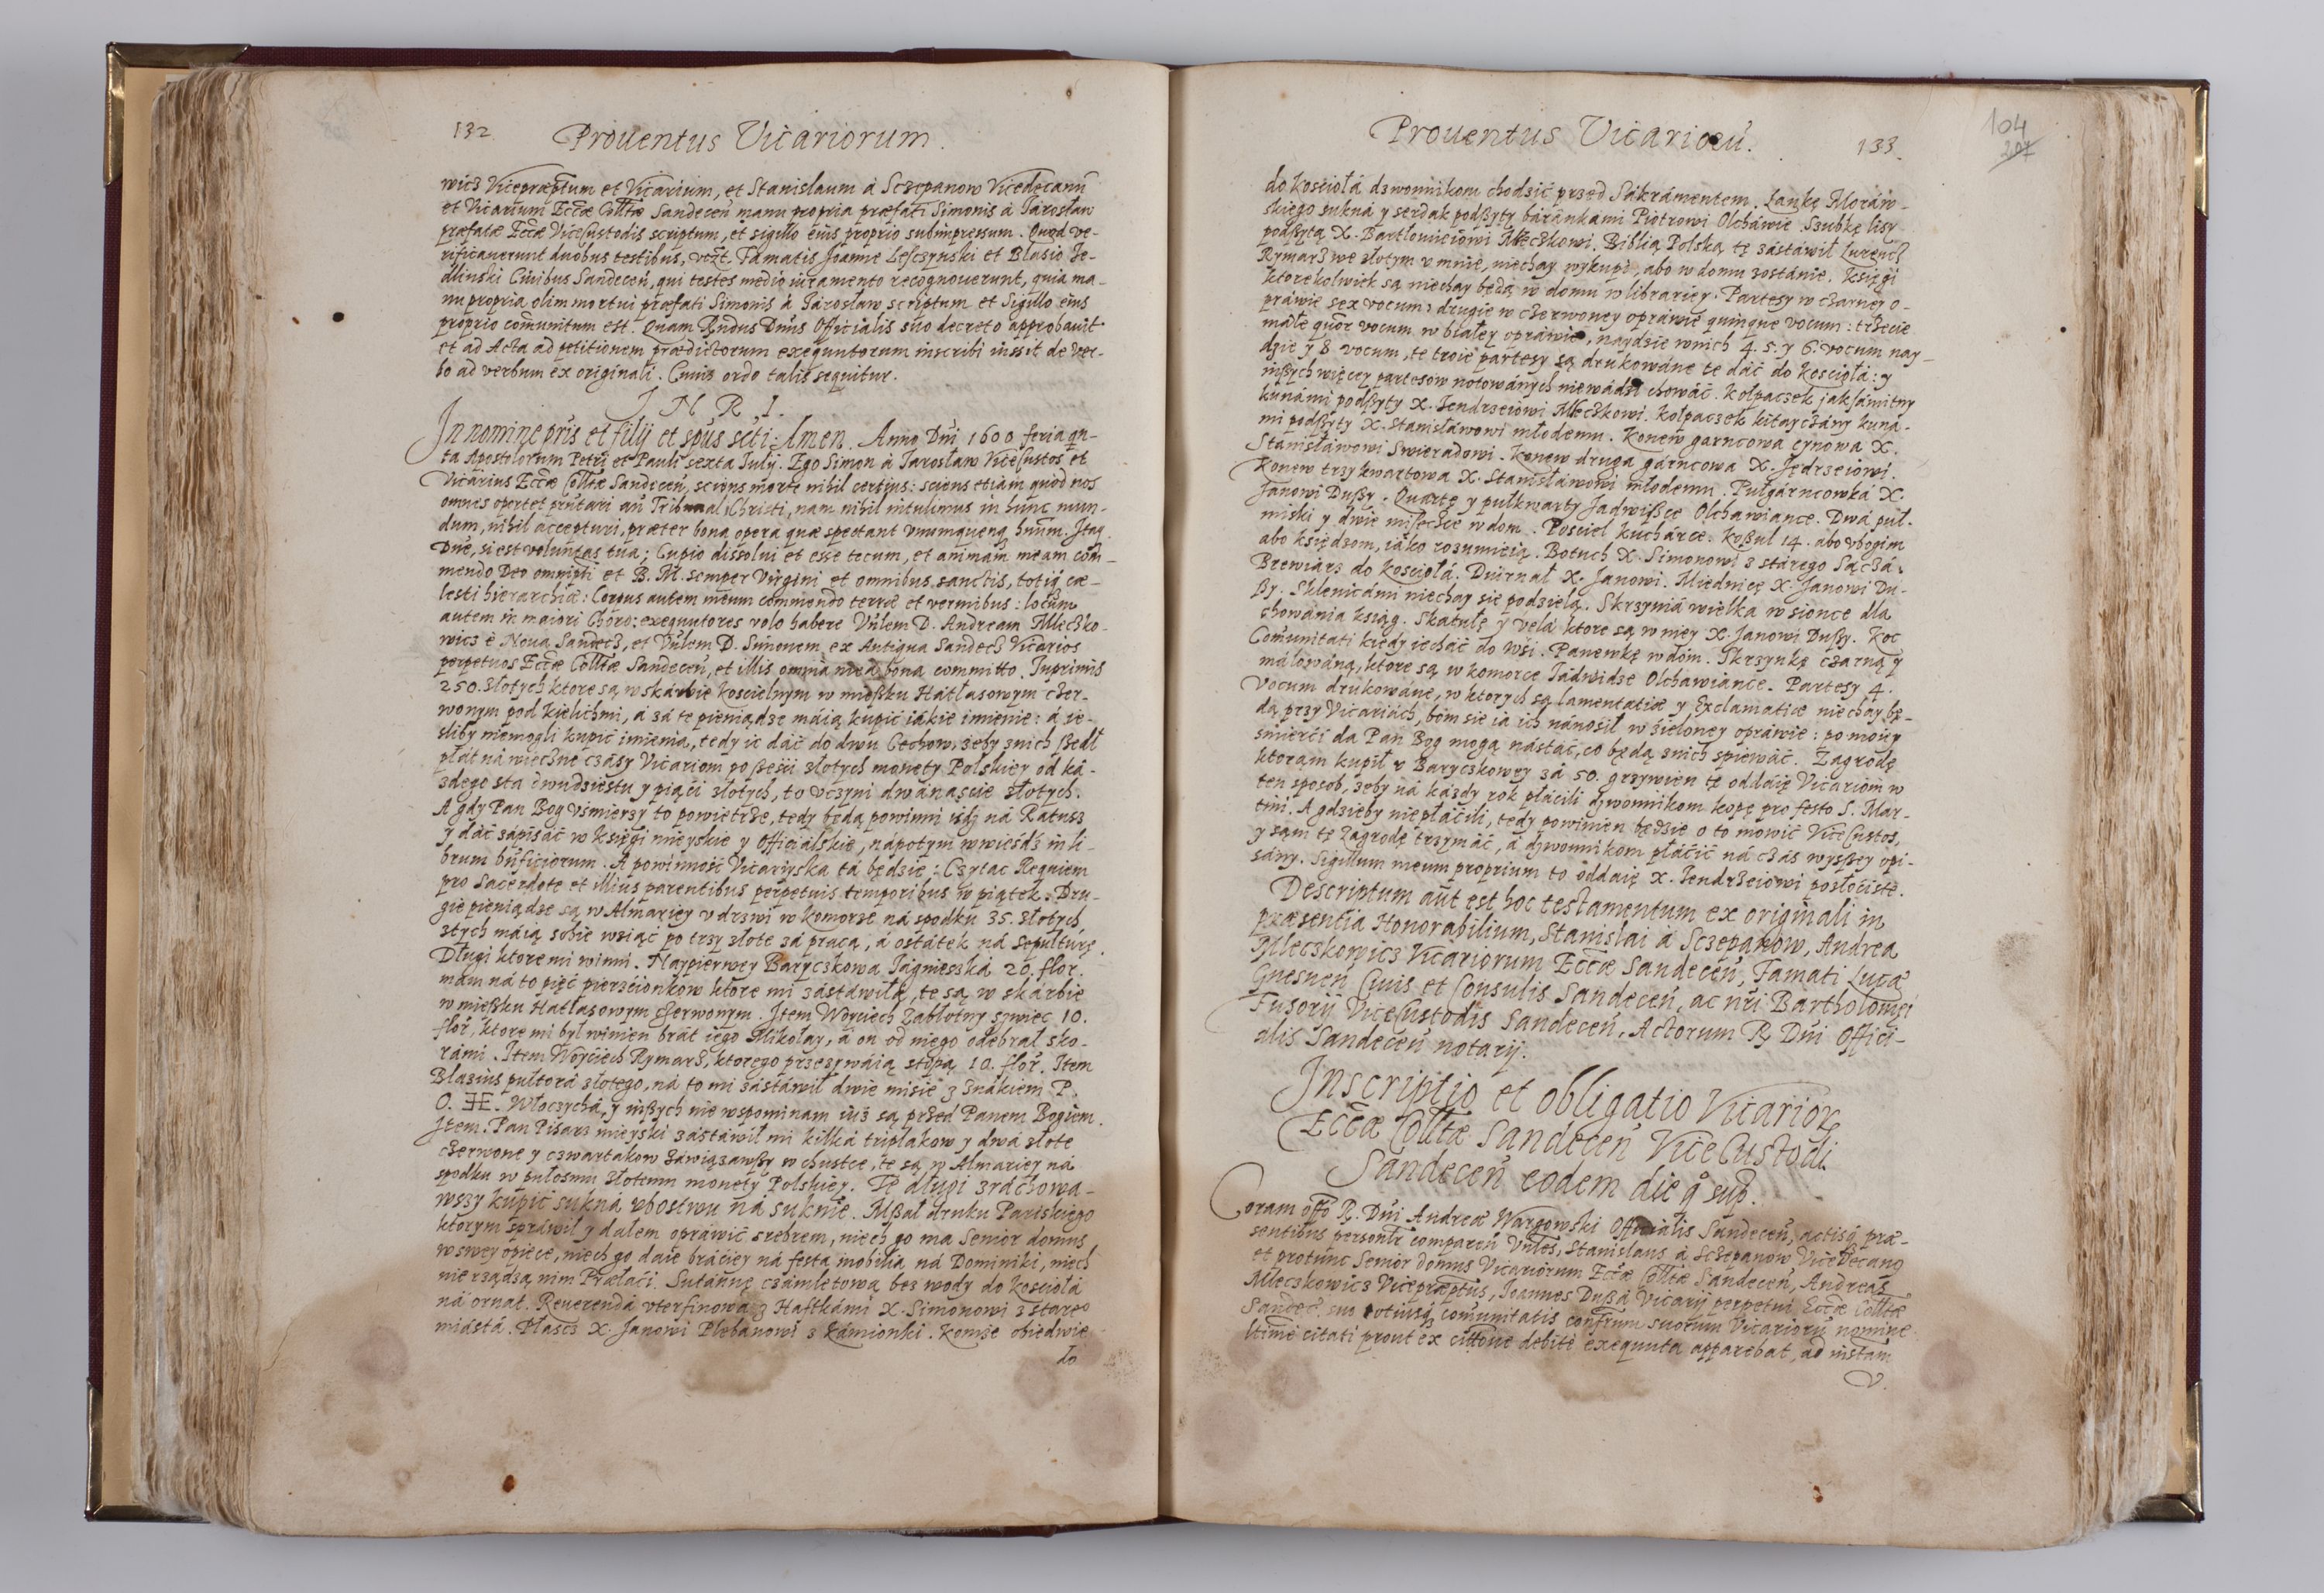 132
Prouentus Vicariorum.
wicz Vicepræptum et Vicarium, et Stanislaum à Sczepanow Vicedecanũ
et Vicarium Eccæ Colltæ Sandeceñ manu propria præfati Simonis à Jarosław
præfatæ Eccæ ViceCustodis scriptum, et sigillo eius proprio subimpressum. Quod ve-
rificauerunt duobus testibus, vczt. Famatis Joanne Lesczynski et Blasio Je-
dlinski Ciuibus Sandeceñ, qui testes medio iuramento recognouerunt, quia ma-
nu propria olim mortui præfati Simonis à Jarosław scriptum et Sigillo eius
proprio com̃unitum est. Quam Rndus Dnus Officialis suo decreto approbauit
et ad Acta ad petitionem prædictorum exequutorum inscribi iussit de ver-
bo ad verbum ex originali. Cuius ordo talis sequitur.
J N R I.
In nomine pris et filij et spus scti: Amen. Anno Dni 1600 feria qn-
ta Apostolorum Petri et Pauli sexta July. Ego Simon à Jarosław ViceCustos et
Vicarius Eccæ Colltæ Sandeceñ, sciens morte nihil certius: sciens etiam quod nos
omnes oportet pñtari añ Tribunal Christi, nam nihil intulimus in hunc mun-
dum, nihil accepturi, præter bona opera quæ spectant vnumquenq; hnum. Itaq.
Dne, si est voluntas tua; Cupio dissolui et esse tecum, et animam meam com-
mendo Deo omnipti et B. M. semper Virgini et omnibus sanctis, totiq; cæ-
lesti hierarchiæ: Corpus autem meum commendo terræ et vermibus: locum
autem in maiori Choro: exequutores volo habere Vnlem D. Andream Mleczko-
wicz è Noua Sandecz, et Vnlem D. Simonem ex Antiqua Sandecz Vicarios
perpetuos Eccæ Colltæ Sandeceñ, et illis omnia mea bona committo. Inprimis
250. złotych ktore są w skárbie koscielnym w mießku Hátłasowym czer-
wonym pod kielichmi, á zá te pieniądze máią kupić iákie imienie: á ie-
sliby niemogli kupić imienia, tedy ie dáć do dwu Cechow, żeby znich ßedł
płát ná wieczne czásy Vicariom po ßesći złotych monety Polskiey od ká-
zdego sta dwudziestu y piąći złotych, to vczyni dwánaście złotych.
A gdy Pan Bog vśmierzy to powietrze, tedy będą powinni iść ná Ratusz
y dáć zápisáć w księgi mieyskie y Officialskie, nápotym wwieśdź in li-
brum bnficiorum. A powinność Vicaryska tá będzie: Czytac Requiem
pro Sacerdote et illius parentibus perpetuis temporibus w piątek: Dru-
gie pieniądze są w Almariey v drzwi w komorze ná spodku 35. złotych
ztych máią sobie wziąć po trzy złote zá pracą, á ostátek ná sepulturę.
Długi ktore mi winni. Naypierwey Baryczkowa Jagnieszká 20. flor.
mam ná to pięć pierzcionkow ktore mi zástáwiłá, te są w skárbie
w mießku Hatłasowym czerwonym. Item Woyciech Zabłotny szwiec 10.
flor, ktore mi był winien brát iego Mikołay, á on od niego odebrał sko-
rámi. Item Woyciech Rymarz, ktorego przezywáią stypą 10. flor. Item
Blasius pułtorá złotego, ná to mi zástáwił dwie misie z znákiem P.
O. ƎE. Włoczychá, y inßych nie wspominam iuż są przed Panem Bogiem.
Item. Pan Pisarz mieyski zástáwił mi kilká triplakow y dwá złote
czerwone y czwartakow záwiązawßy w chustce, te są w Almariey ná
spodku w pułosmu złotemu monety Polskiey. Te długi zráchowa-
wszy kupić sukná vbostwu ná suknie. Mßał druku Pariskiego
ktorym spráwił y dałem opráwić srebrem, niech go ma Senior domus
w swey opiece, niech go daie bráciey ná festa mobilia ná Dominiki, niech
nie rządzą nim Præłaći. Sutánnę czámletową bez wody do kościołá
ná ornat. Reuerendá vterfinowa z Haftkámi X. Simonowi z stareo
miástá. Płascz X. Janowi Plebanowi z Kámionki. Komże obiedwie
do
Prouentus Vicariorũ.
133.
104
207
do kościołá dzwonnikom chodzić przed Sákrámentem. Łankę Moráw-
skiego sukná y serdak podßyty báránkámi Piotrowi Olcháwie. Szubkę lisy
podßytą X. Bartłomieiowi Mleczkowi. Biblią Polską tę zástáwił Lurencz
Rymarz we złotym v mnie, niechay wykupi, abo w domu zostánie. Księgi
ktorekolwiek są niechay będą w domu w librariey. Partesy w czarney o-
práwie sex vocum; drugie w czerwoney opráwie quinque vocum: trzecie
máłe quor vocum w białey opráwie, naydzie wnich 4. 5. y 6. vocum nay-
dzie y 8 vocum, te troie partesy są drukowáne te dáć do kościołá: y
inßych więcey partesow notowánych niewádzi chowáć. Kołpaczek jaksámitny
kunámi podßyty X. Jendrzeiowi Mleczkowi. Kołpaczek kitayczány kuná-
mi podßyty X. Stanisłáwowi młodemu. Konew garncowa cynowa X.
Stanisłáwowi Swieradowi. Konew druga gárncowa X. Jędrzeiowi.
Konew trzykwartowa X. Stanisłáwowi młodemu. Pułgárncowká X.
Janowi Dußy. Quartę y pułkwarty Jadwißce Olchawiance. Dwá puł-
miski y dwie miseczce w dom. Posciel kuchárce. Koßul 14. abo vbogim
abo księdzom, iáko rozumieią. Botuch X. Simonowi z stárego Sączá.
Brewiarz do kościołá. Diurnał X. Janowi. Miednicę X. Janowi Du-
ßy. Sklenicámi niechay się podzielą. Skrzyniá wielka w sionce dla
chowánia ksiąg. Skatułę y velá ktore są w niey X. Janowi Dußy. Koc
Com̃unitati kiedy iecháć do wśi. Panewkę w dom. Skrzynkę czarną y
málowáną, ktore są w komorce Jádwidze Olchawiance. Partesy 4.
vocum drukowáne, w ktorych są lamentatiæ y Exclamatiæ niechay bę-
dą przy Vicariách, bom sie ia ich nánosił w źieloney opráwie: po moiey
śmierći da Pan Bog mogą nástáć, co będą znich śpiewáć. Zagrodę
ktoram kupił v Baryczkowey zá 50. grzywien tę oddáię Vicariom w
ten sposob, żeby ná káżdy rok płácili dzwonnikom kopę pro festo S. Mar-
tini. A gdzieby niepłáćili, tedy powinien będzie o to mowić ViceCustos,
y sąm tę Zagrodę trzymáć, á dzwonnikom płáćić ná czás wyßßey opi-
sány. Sigillum meum proprium to oddáię X. Jendrzeiowi pozłociste.
Descriptum aũt est hoc testamentum ex originali in
præsentia Honorabilium, Stanislai à Sczepanow, Andreæ
Mleczkowicz Vicariorum Eccæ Sandeceñ, Famati Lucæ
Gnesneñ Ciuis et Consulis Sandeceñ, ac nri Bartholomæi
Fusorij ViceCustodis Sandeceñ, Actorum R. Dni Offici-
alis Sandeceñ notarij.
Inscriptio et obligatio Vicarior̃
Eccæ Colltæ Sandeceñ ViceCustodi
Sandeceñ eodem die q° sup.
Coram offo R. Dni Andreæ Wargowski Officialis Sandeceñ, actisq; præ-
sentibus personlr compareñ Vnles, Stanislaus à Sczepanow ViceDecanq
et protunc Senior domus Vicariorum Eccæ Colltæ Sandeceñ, Andreas
Mleczkowicz Vicepræptus, Joannes Dußa Vicarij perpetui Eccæ Colltæ
Sandec. suo totiusq; com̃unitatis confrum suorum Vicariorũ nomine
ltime citati prout ex citõne debitè exequuta apparebat, ad instam
V.